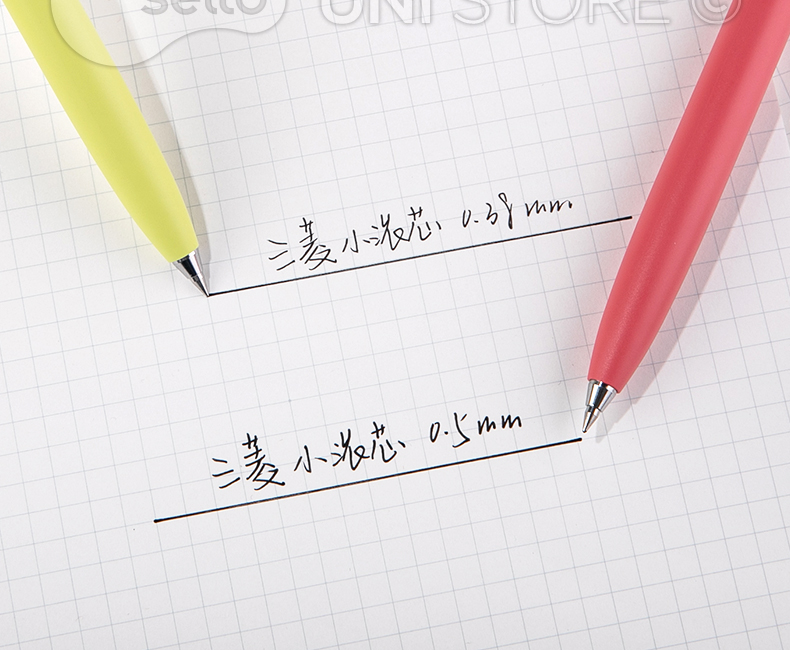 sello UNI STORE ©
三菱小浓芯 0.38mm
三菱小浓芯 0.5mm